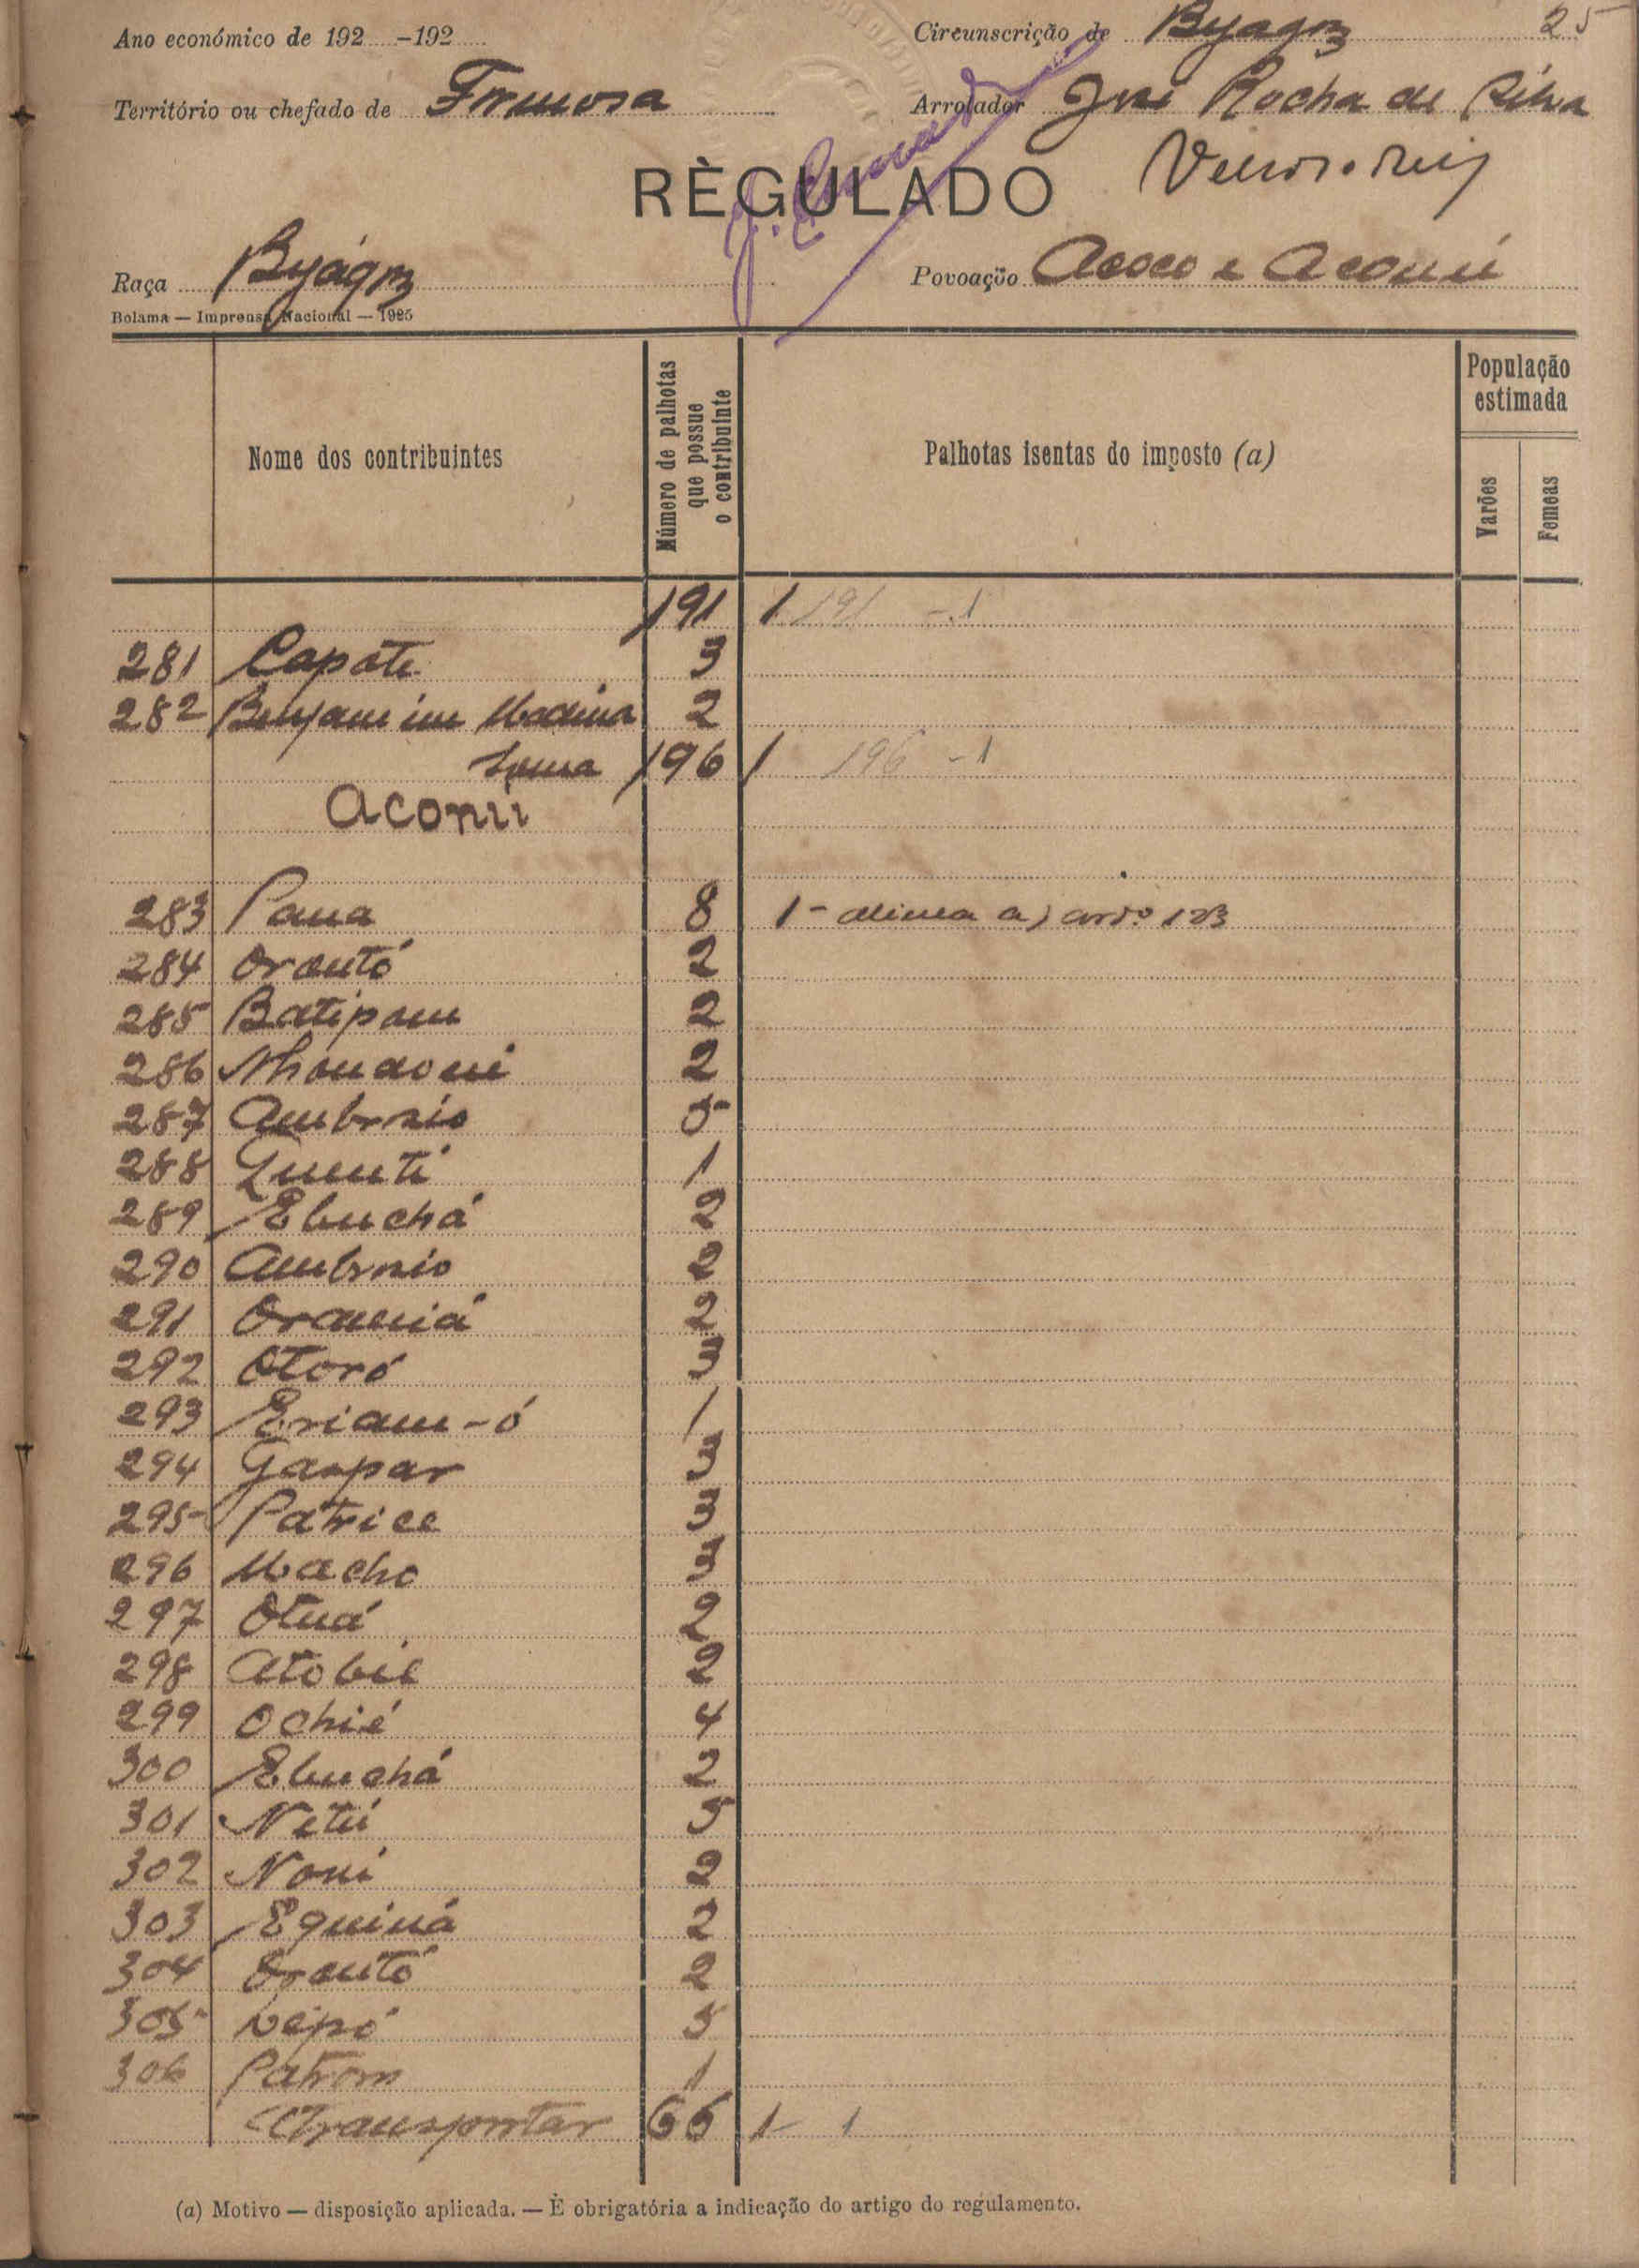 Ano económico de 192 -192
Circunscrição de Byagoz 25
Território ou chefado de Formosa
Arrolador José Rocha da Silva
RÈGULADO
Raça Byágoz
Povoação Acoco e Aconú
Bolama — Imprensa Nacional — 1925
Nome dos contribuintes
Número de palhotas que possue o contribuinte
Palhotas isentas do imposto (a)
População estimada
Varões
Femeas
191 1 191 - 1
281 Capote 3
282 Benjamim Madina 2
Soma 196 1 196 - 1
Aconú
283 Pana 8 1 - alinea a) art.º 123
284 Orantó 2
285 Batipam 2
286 Nhonaoni 2
287 Ambrosio 5
288 Quenti 1
289 Ebuchá 2
290 Ambrosio 2
291 Oraminá 2
292 Otoró 3
293 Eriam-ó 1
294 Gaspar 3
295 Patrice 3
296 Macho 3
297 Otuá 2
298 Atobié 2
299 Ochié 4
300 Ebuchá 2
301 Netú 5
302 Noni 2
303 Equiná 2
304 Orantó 2
305 Nepó 5
306 Patrom 1
A transportar 66 1 - 1
(a) Motivo — disposição aplicada. — È obrigatória a indicação do artigo do regulamento.